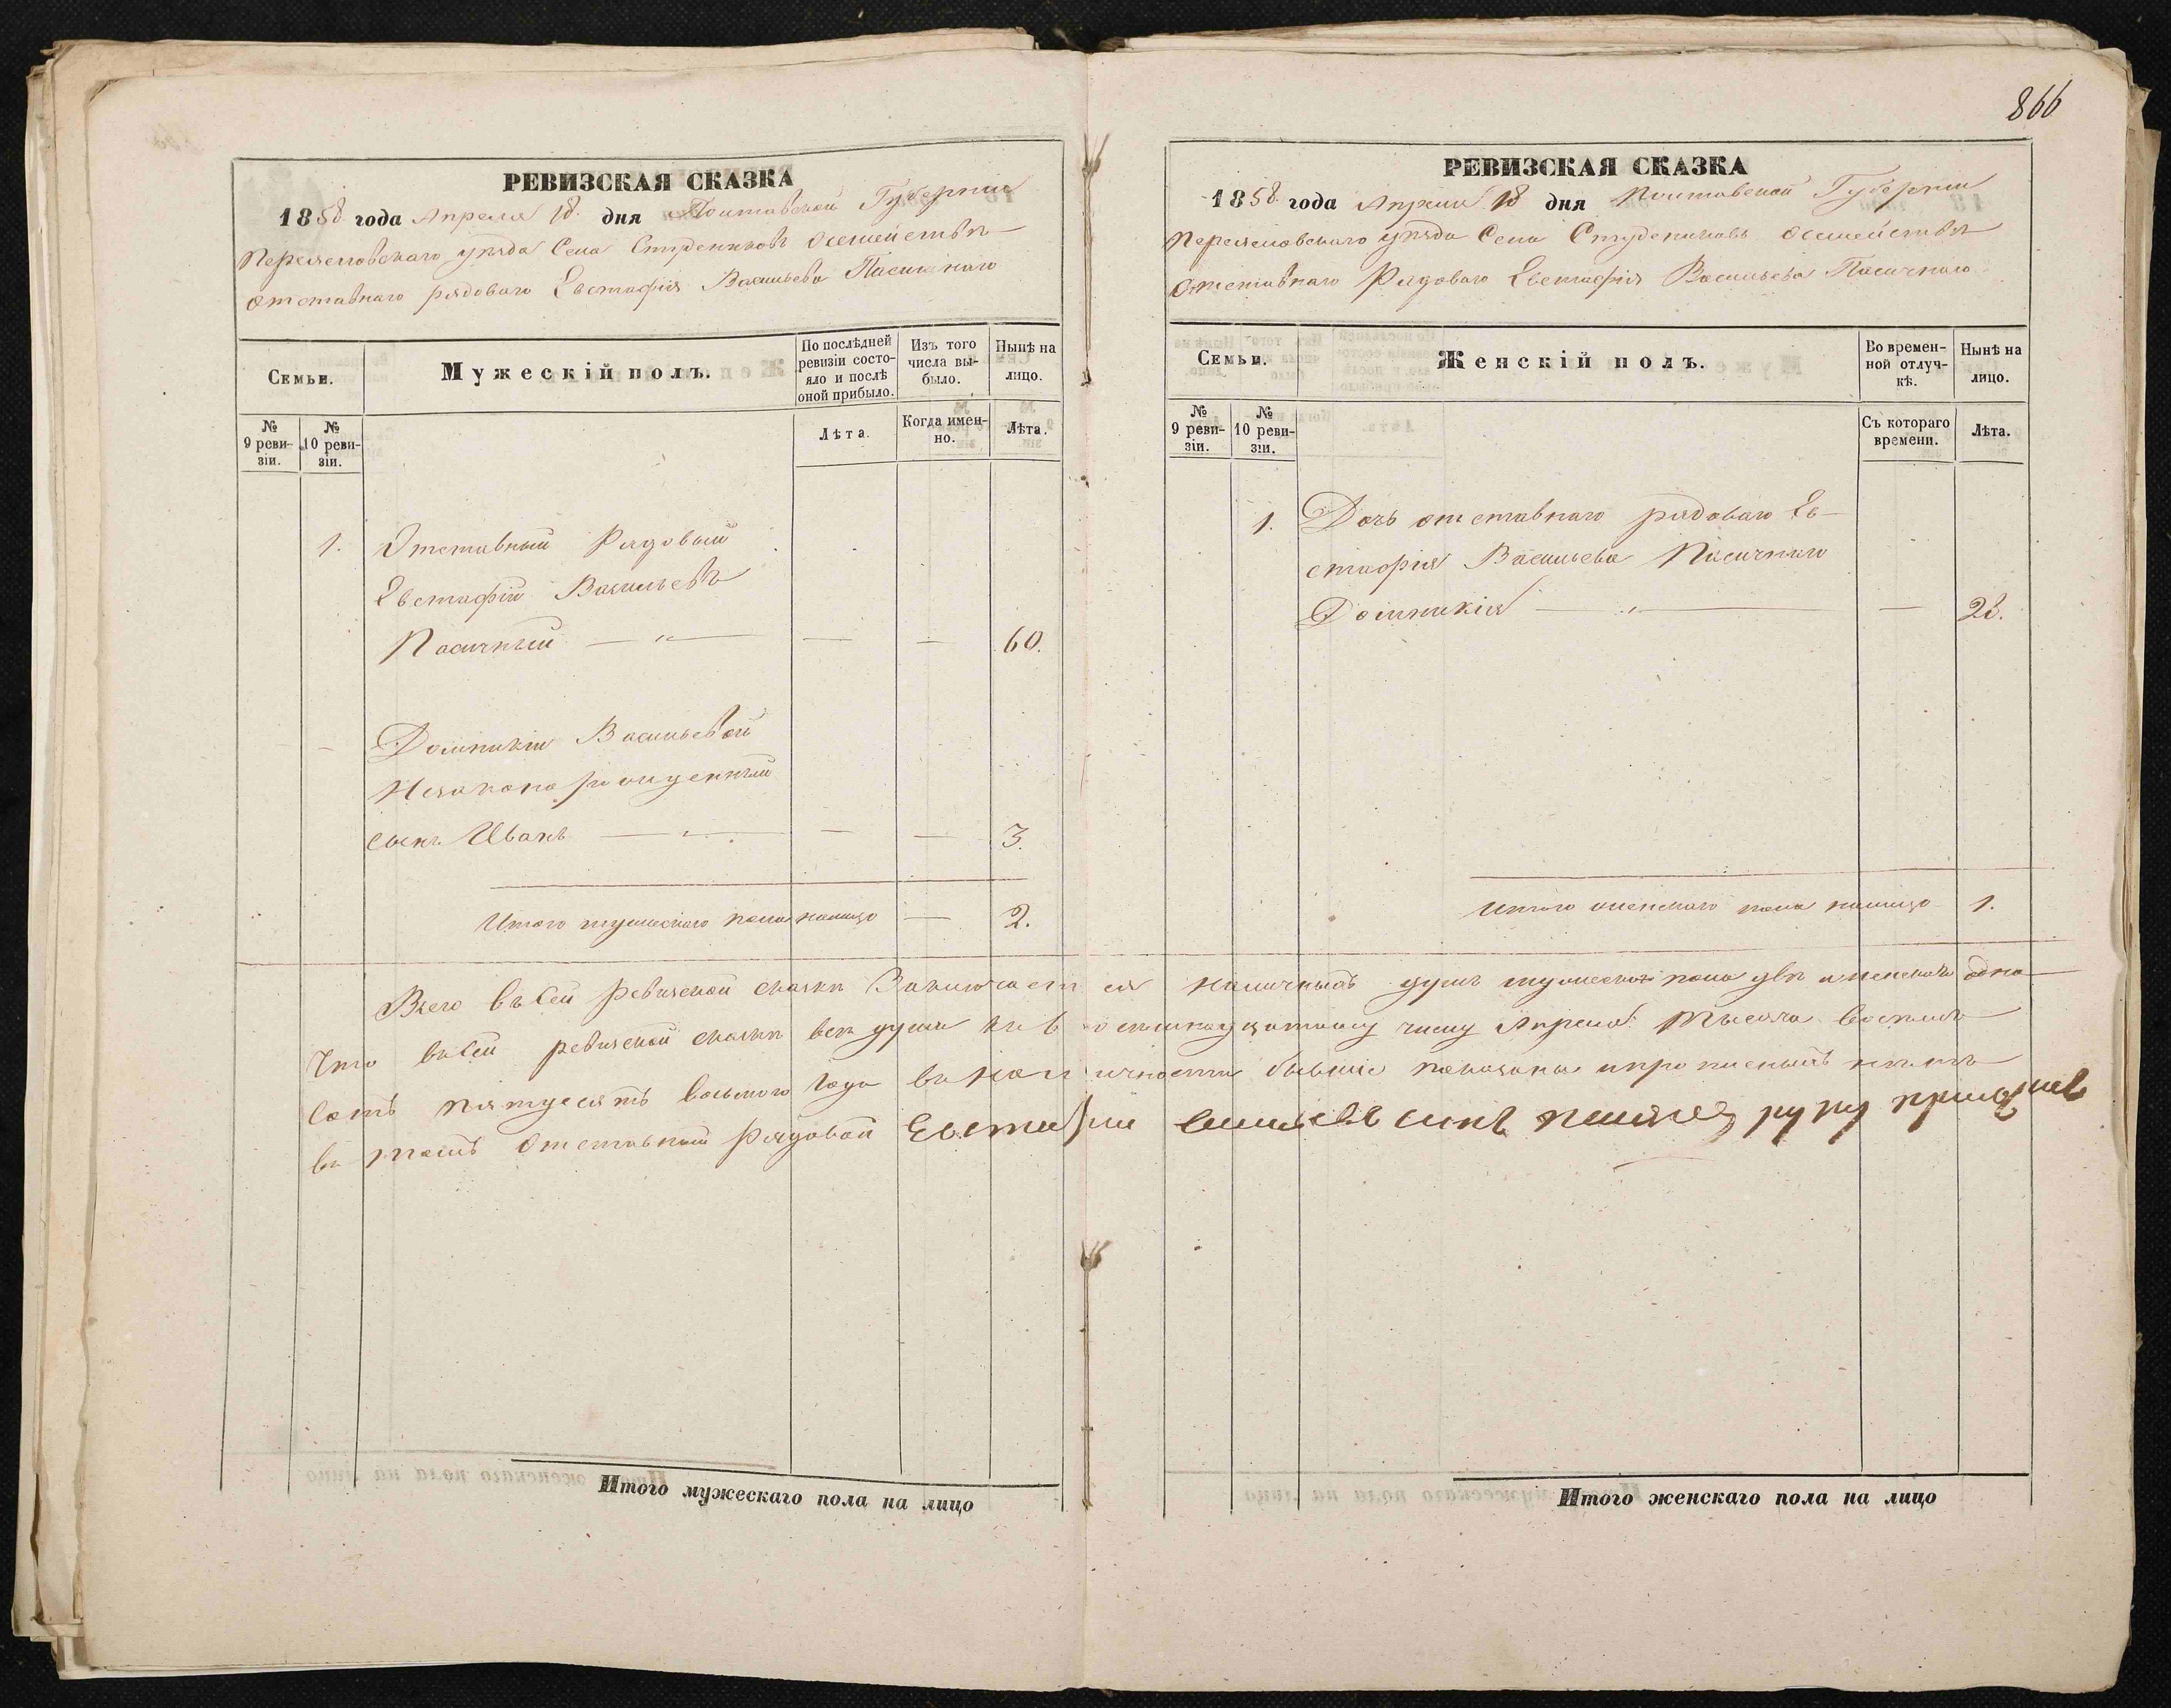 866
РЕВИЗСКАЯ СКАЗКА
1858 года Апреля 18 дня Полтавской Губернии
Переяславского уѣзда Села Студениковъ осемействѣ
отставнаго рядоваго Евстафія Васильева Пасичнаго
Семьи.
Мужескій полъ.
По послѣдней ревизіи состояло и послѣ оной прибыло.
Изъ того числа выбыло.
Нынѣ на лицо.
№ 9 ревизіи.
№ 10 ревизіи.
Лѣта.
Когда именно.
Лѣта.
1. Отставный Рядовый
Евстафій Васильевъ
Пасичный — „ — — — 60.
— Домникіи Васильевой
Незаконорожденный
сынъ Иванъ — „ — — — 3.
Итого мужескаго пола налицо — 2.
РЕВИЗСКАЯ СКАЗКА
1858 года Апреля 18 дня Полтавской Губернии
Переяславскаго уѣзда Села Студениковъ осемействѣ
отставнаго Рядоваго Евстафія Васильева Пасичнаго
Семьи.
Женскій полъ.
Во временной отлучкѣ.
Нынѣ на лицо.
№ 9 ревизіи.
№ 10 ревизіи.
Съ котораго времени.
Лѣта.
1. Дочь отставнаго рядоваго Ев-
стафія Васильева Пасичнаго
Домникія — „ — — 28.
Итого женскаго пола налицо 1.
Всего въ сей ревизской сказкѣ Заключается наличныхъ душъ мужеска пола двѣ и женска одна
Что въ сей ревизской сказкѣ всѣ души къ восемнадцатому числу Апреля Тысяча восемь
сотъ пятдесятъ восьмого года въ наличности бывшіе показаны и прописныхъ нѣтъ
въ томъ Отставной Рядовой Евстафий
руку приложил
Итого мужескаго пола на лицо
Итого женскаго пола на лицо